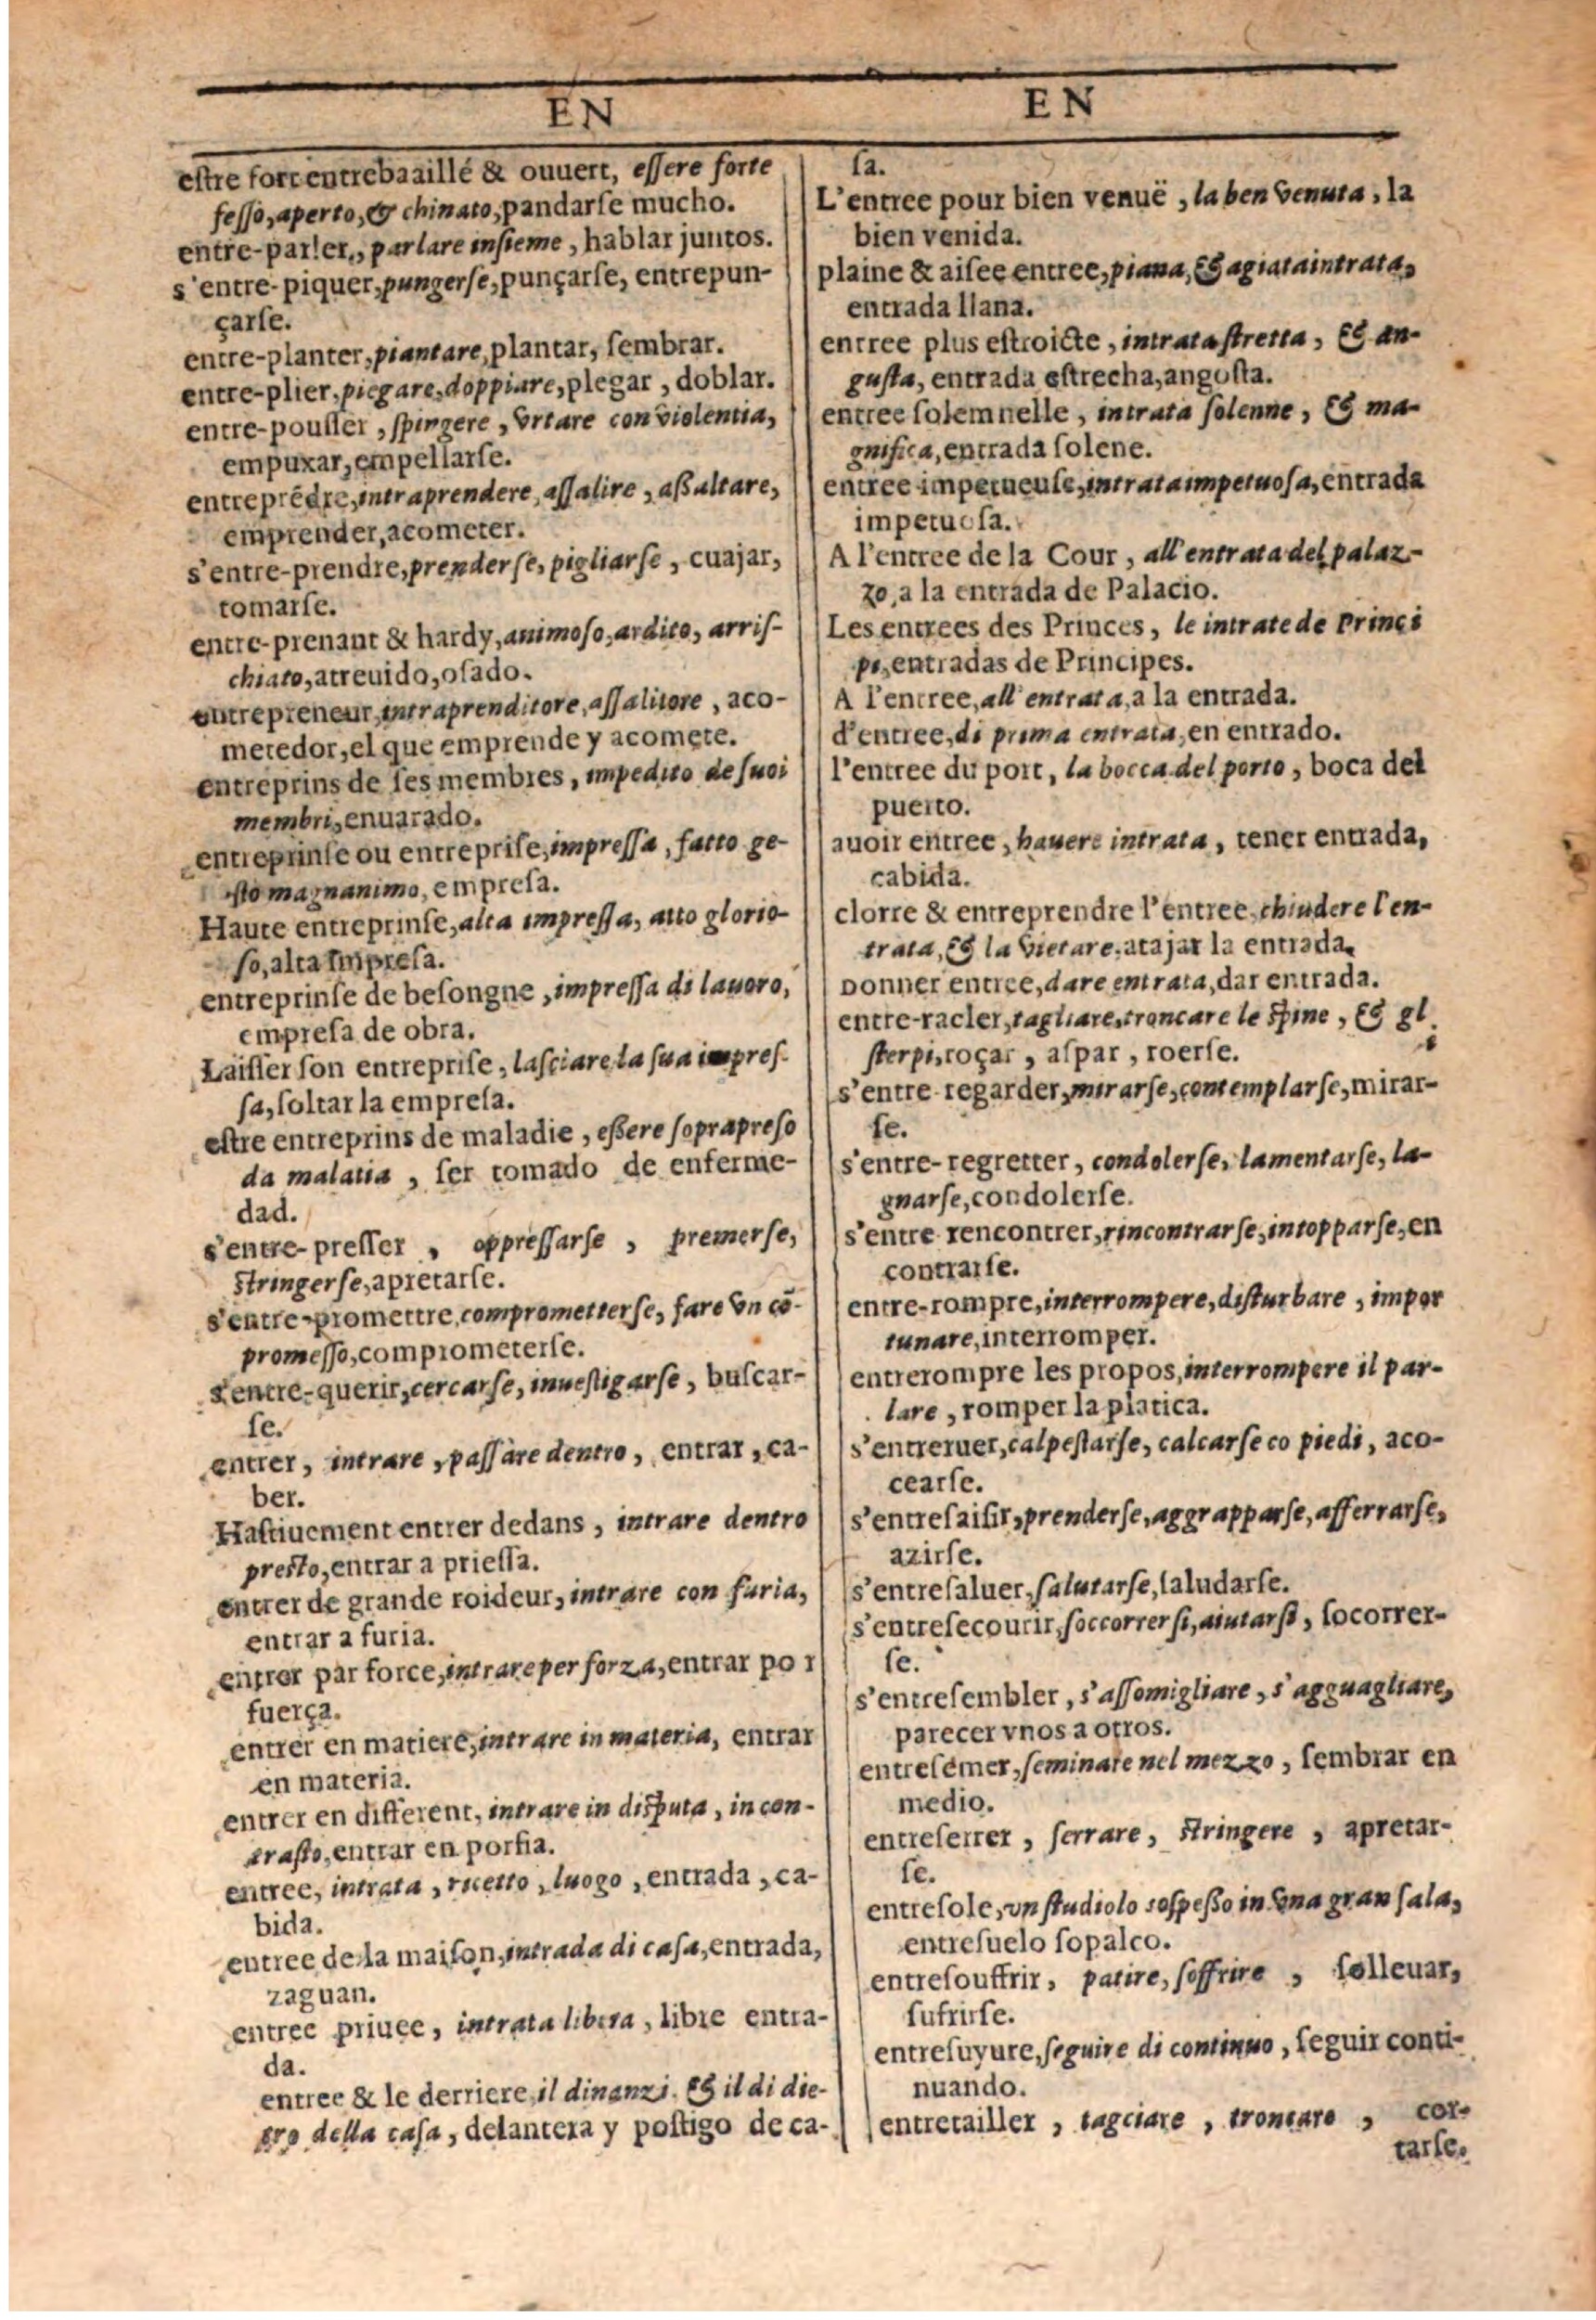 EN
estre fort entrebaaillé & ouuert, essere forte
fesso, aperto, & chinato, pandarse mucho.
entre-parler, parlare insieme, hablar juntos.
s'entre-piquer, pungerse, punçarse, entrepun-
çarse.
entre-planter, piantare, plantar, sembrar.
entre-plier, piegare, doppiare, plegar, doblar.
entre-pousser, spingere, vrtare con violentia,
empuxar, empellarse.
entreprēdre, intraprendere, assalire, assaltare,
emprender, acometer.
s'entre-prendre, prenderse, pigliarse, cuajar,
tomarse.
entre-prenant & hardy, animoso, ardito, arris-
chiato, atreuido, osado.
entrepreneur, intraprenditore, assalitore, aco-
metedor, el que emprende y acomete.
entreprins de ses membres, impedito de suoi
membri, enuarado.
entreprinse ou entreprise, impressa, fatto ge-
sto magnanimo, empresa.
Haute entreprinse, alta impressa, atto glorio-
so, alta impresa.
entreprinse de besongne, impressa di lauoro,
empresa de obra.
Laisser son entreprise, lasciare la sua impres-
sa, soltar la empresa.
estre entreprins de maladie, essere soprapreso
da malatia, ser tomado de enferme-
dad.
s'entre-presser, oppressarse, premerse,
stringerse, apretarse.
s'entre-promettre, comprometterse, fare vn cō-
promesso, comprometerse.
s'entre-querir, cercarse, inuestigarse, buscar-
se.
entrer, intrare, passare dentro, entrar, ca-
ber.
Hastiuement entrer dedans, intrare dentro
presto, entrar a priessa.
entrer de grande roideur, intrare con furia,
entrar a furia.
entrer par force, intrare per forza, entrar por
fuerça.
entrer en matiere, intrare in materia, entrar
en materia.
entrer en different, intrare in disputa, in con-
trasto, entrar en porfia.
entree, intrata, ricetto, luogo, entrada, ca-
bida.
entree de la maison, intrada di casa, entrada,
zaguan.
entree priuee, intrata libera, libre entra-
da.
entree & le derriere, il dinanzi. & il di die-
tro della casa, delantera y postigo de ca-
EN
sa.
L'entree pour bien venuë, la ben venuta, la
bien venida.
plaine & aisee entree, piana, & agiata intrata,
entrada llana.
entree plus estroicte, intrata stretta, & an-
gusta, entrada estrecha, angosta.
entree solemnelle, intrata solenne, & ma-
gnifica, entrada solene.
entree impetueuse, intrata impetuosa, entrada
impetuosa.
A l'entree de la Cour, all'entrata del palaz-
zo, a la entrada de Palacio.
Les entrees des Princes, le intrate de Princi
pi, entradas de Principes.
A l'entree, all'entrata, a la entrada.
d'entree, di prima entrata, en entrado.
l'entree du port, la bocca del porto, boca del
puerto.
auoir entree, hauere intrata, tener entrada,
cabida.
clorre & entreprendre l'entree, chiudere l'en-
trata, & la vietare, atajar la entrada.
Donner entree, dare entrata, dar entrada.
entre-racler, tagliare, troncare le spine, & gl
i
sterpi, roçar, aspar, roerse.
s'entre regarder, mirarse, contemplarse, mirar-
se.
s'entre-regretter, condolerse, lamentarse, la-
gnarse, condolerse.
s'entre rencontrer, rincontrarse, intopparse, en
contrarse.
entre-rompre, interrompere, disturbare, impor
tunare, interromper.
entrerompre les propos, interrompere il par-
lare, romper la platica.
s'entreruer, calpestarse, calcarse co piedi, aco-
cearse.
s'entresaisir, prenderse, aggrapparse, afferrarse,
azirse.
s'entresaluer, salutarse, saludarse.
s'entresecourir, soccorrersi, aiutarsi, socorrer-
se.
s'entresembler, s'assomigliare, s'agguagliare,
parecer vnos a otros.
entresemer, seminare nel mezzo, sembrar en
medio.
entreserrer, serrare, stringere, apretar-
se.
entresole, vn studiolo sospesso in vna gran sala,
entresuelo sopalco.
entresouffrir, patire, soffrire, solleuar,
sufrirse.
entresuyure, seguire di continuo, seguir conti-
nuando.
entretailler, tagciare, troncare, cor-
tarse.